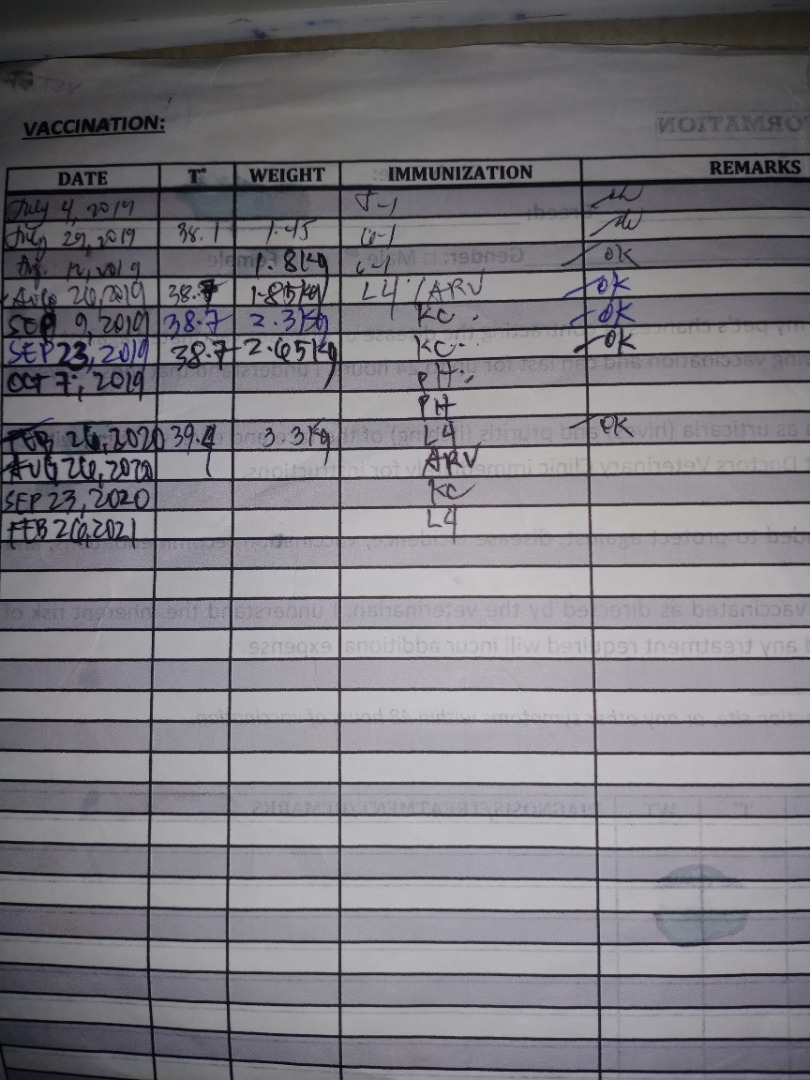 VACCINATION:
DATE T° WEIGHT IMMUNIZATION REMARKS
July 4, 2019 5-1
July 29, 2019 38.1 1.45 6-1
Aug. 12, 2019 1.8kg 6-1 OK
AUG 26, 2019 38.7 1.85kg L4 / ARV OK
SEP 9, 2019 38.7 2.3kg KC OK
SEP 23, 2019 38.7 2.65kg KC OK
OCT 7, 2019 PH
PH
FEB 26, 2020 39.4 3.3kg L4 OK
AUG 26, 2020 ARV
SEP 23, 2020 KC
FEB 26, 2021 L4